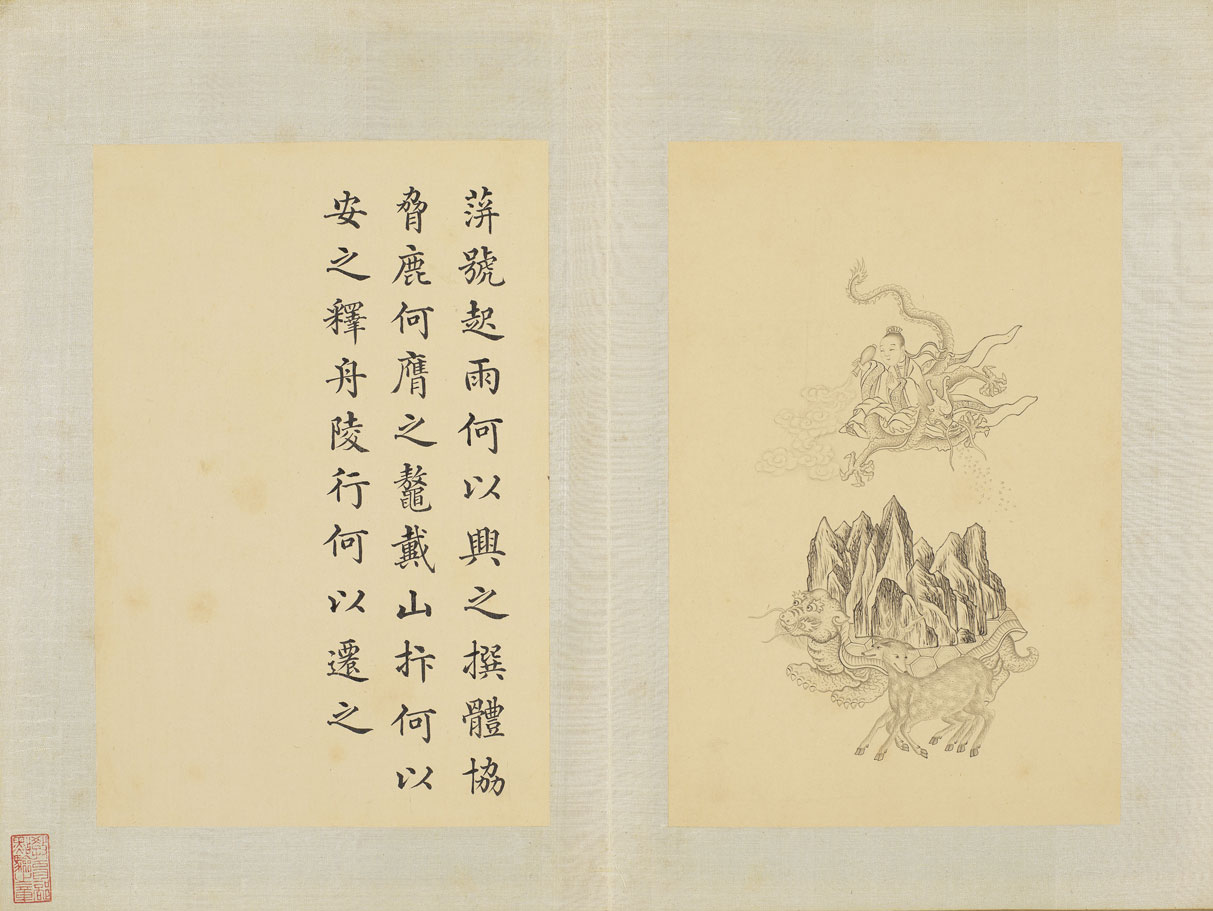 蓱號起雨何以興之撰體協
脅鹿何膺之鼇戴山抃何以
安之釋舟陵行何以遷之